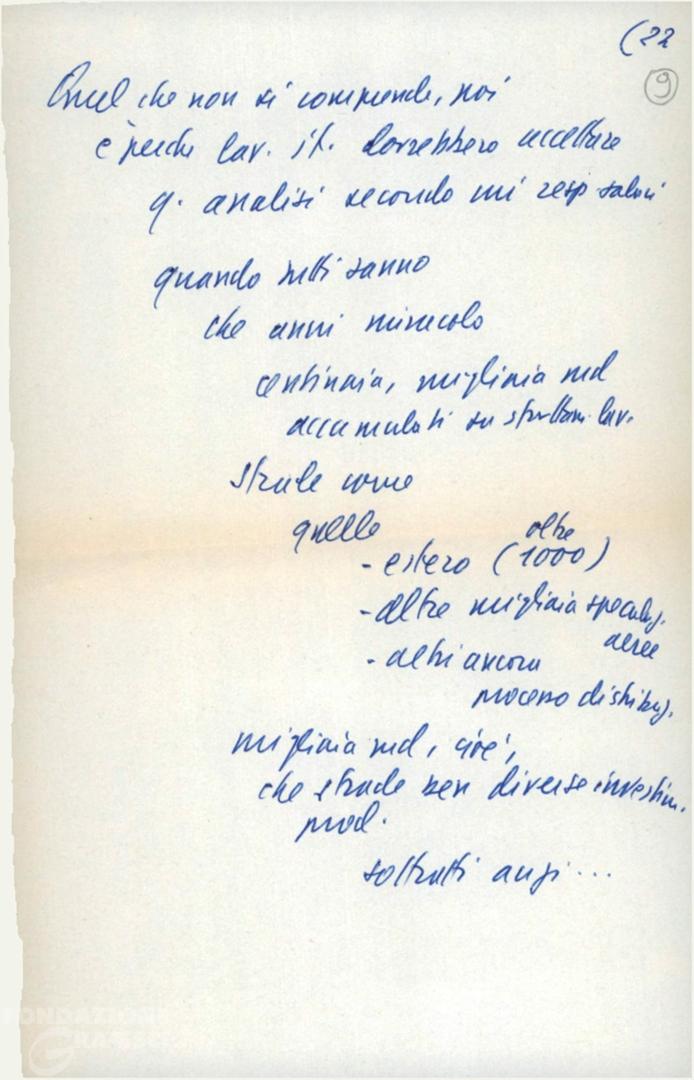 (22
9
Quel che non si comprende, poi
è perché lav. it. dovrebbero accettare
q. analisi secondo cui resp salari
quando tutti sanno
che anni miracolo
centinaia, migliaia md
accumulati su sfruttam. lav.
strade come
quelle
- estero (oltre 1000)
- altre migliaia speculaz.
aree
- altri ancora
processo distribuz.
migliaia md, cioè,
che strade ben diverse investim.
prod.
sottratti anzi...
FONDAZIONE
GRAMSCI